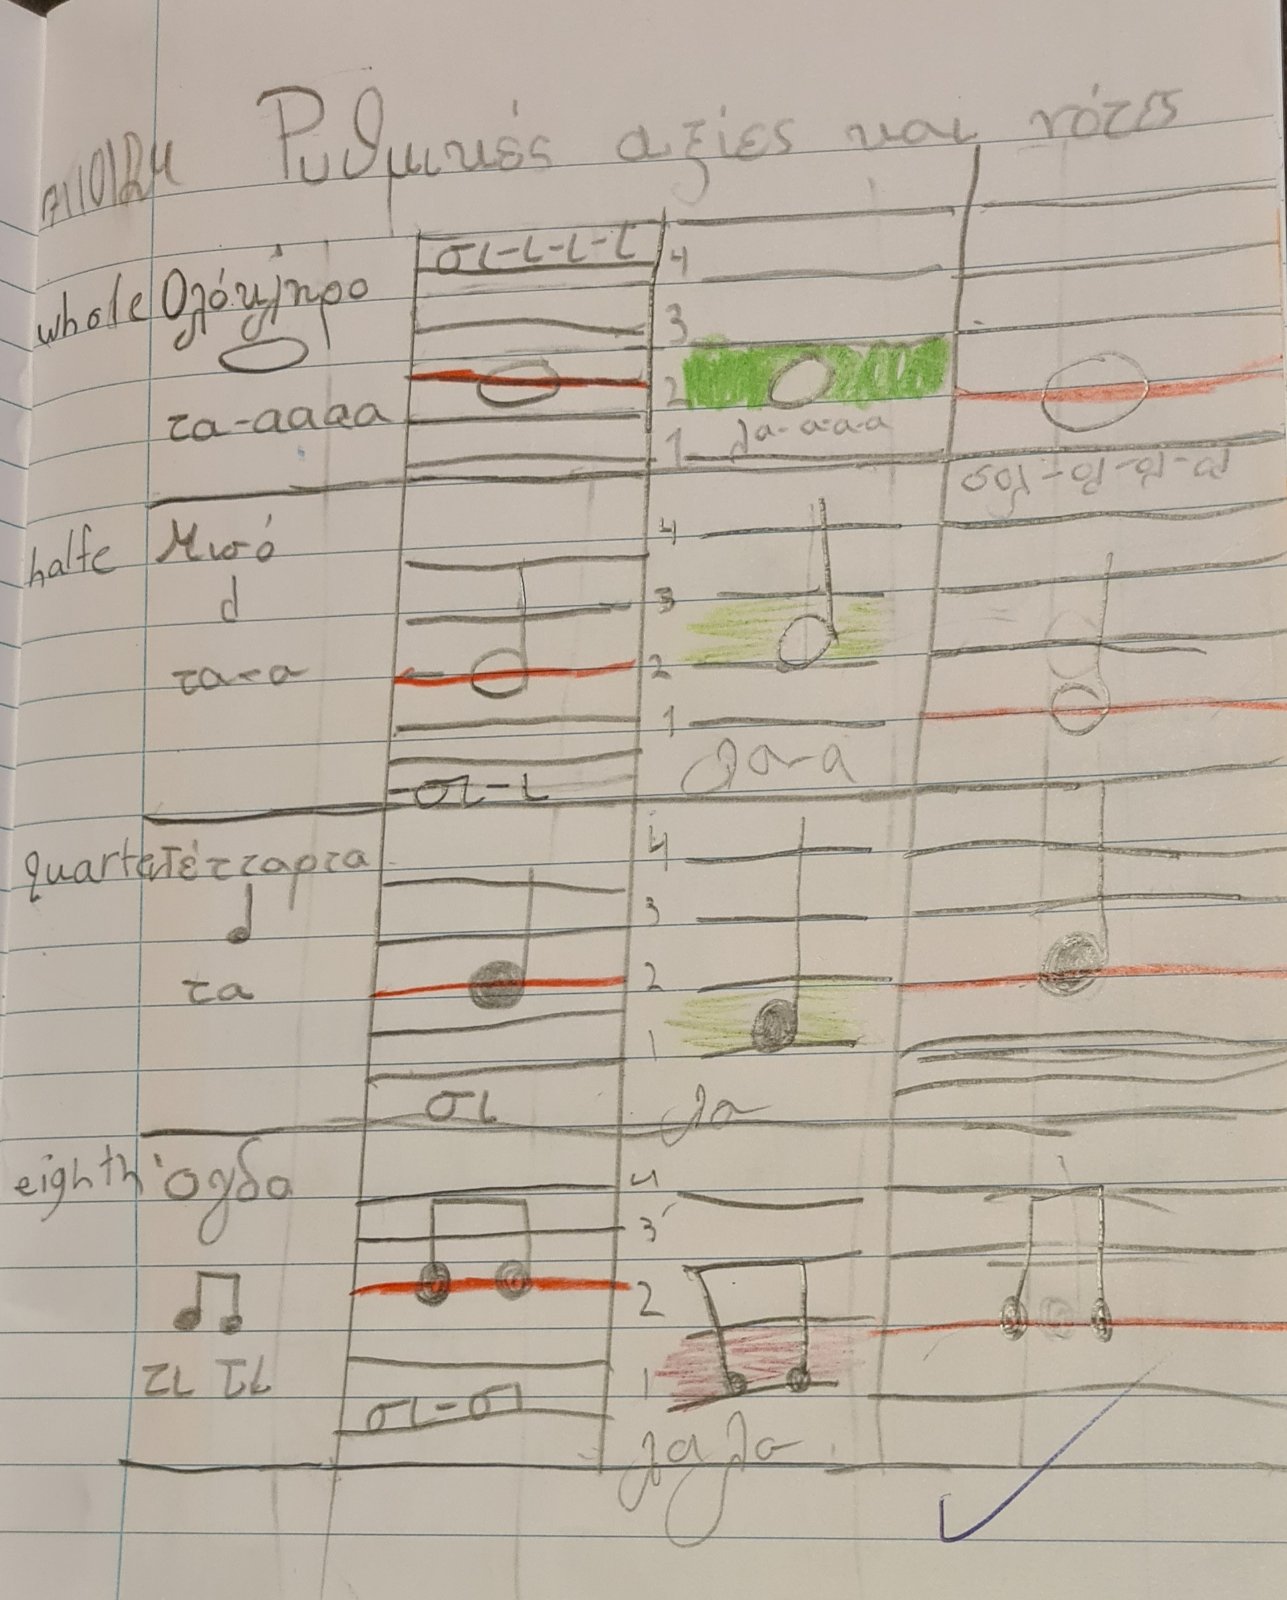 Ρυθμικές αξίες και νότες
σι-ι-ι-ι
4
whole Ολόκληρο
3
2
τα-αααα
λα-α-α-α
1
σολ-ολ-ολ-ολ
4
halfe Μισό
3
τα-α
2
1
λα-α
-σι-ι
4
quarter τέταρτα
3
τα
2
1
σι
λα
eighth όγδοα
4
3
2
τι τι
1
σι-σι
λα λα